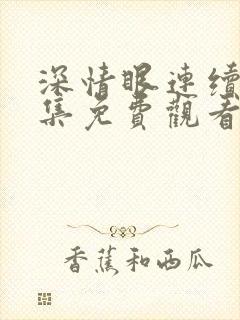 深情眼連續
集免費觀看
香蕉和西瓜